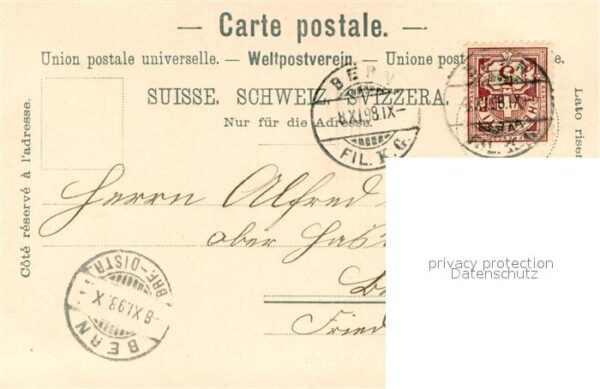 — Carte postale. —
Union postale universelle. — Weltpostverein. — Unione postale
SUISSE. SCHWEIZ. SVIZZERA.
Nur für die Adresse.
Côté réservé à l'adresse.
Lato riser
BERN
8.XI.98.IX–
FIL. K.G.
5
8.XI.98.IX
Herrn Alfred
ober
Fried
BERN
8.XI.98.X
BRF-DISTR.
privacy protection
Datenschutz